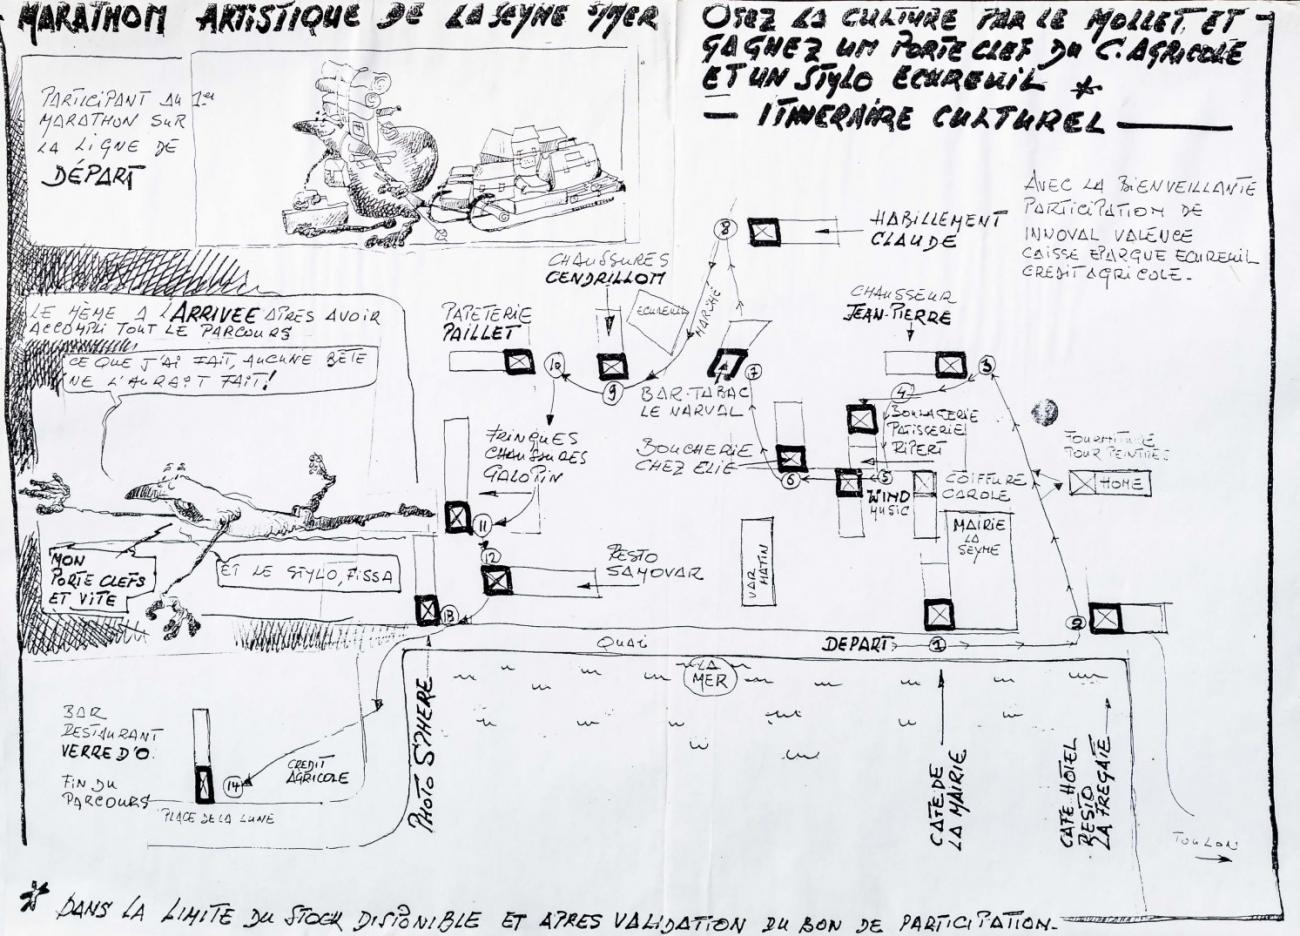 MARATHON ARTISTIQUE DE LA SEYNE S/MER
OSEZ LA CULTURE PAR LE MOLLET, ET
GAGNEZ UN PORTE CLEF DU C. AGRICOLE
ET UN STYLO ECUREUIL *
— ITINERAIRE CULTUREL —
PARTICIPANT AU 1er
MARATHON SUR
LA LIGNE DE
DÉPART
AVEC LA BIENVEILLANTE
PARTICIPATION DE
INNOVAL VALENCE
CAISSE EPARGNE ECUREUIL
CREDIT AGRICOLE.
8
HABILLEMENT
CLAUDE
CHAUSSURES
CENDRILLON
ECUREUIL
MARCHÉ
CHAUSSEUR
JEAN-PIERRE
PAPETERIE
PAILLET
LE MÊME A L'ARRIVEE APRES AVOIR
ACCOMPLI TOUT LE PARCOURS
CE QUE J'AI FAIT, AUCUNE BÊTE
NE L'AURAIT FAIT!
10
9
7
3
4
BAR-TABAC
LE NARVAL
BOULANGERIE
PATISSERIE
RIPERT
FRINGUES
CHAUSSURES
GALOPIN
BOUCHERIE
CHEZ ELIE
FOURNITURE
POUR PEINTRES
HOME
6
5
WIND
MUSIC
COIFFURE
CAROLE
11
12
MAIRIE
LA
SEYNE
VAR
MATIN
RESTO
SAMOVAR
MON
PORTE CLEFS
ET VITE
ET LE STYLO, FISSA
13
2
QUAI
DEPART
1
LA
MER
PHOTO SPHERE
CAFE DE
LA MAIRIE
CAFE HÔTEL
RESTO
LA FREGATE
BAR
RESTAURANT
VERRE D'O
FIN DU
PARCOURS
14
CREDIT
AGRICOLE
PLACE DE LA LUNE
TOULON
* DANS LA LIMITE DU STOCK DISPONIBLE ET APRES VALIDATION DU BON DE PARTICIPATION.